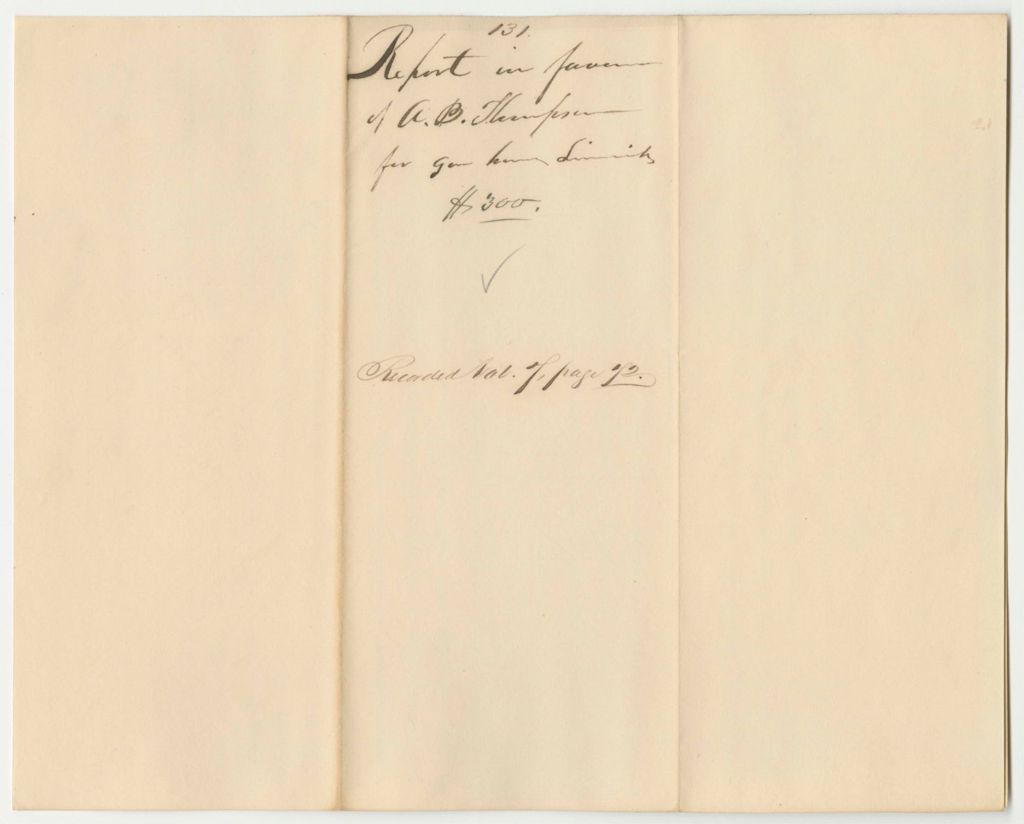 131.
Report in favor
of A. B. Thompson
for gun house, Limerick
$300.
Recorded Vol. 7, page 72.